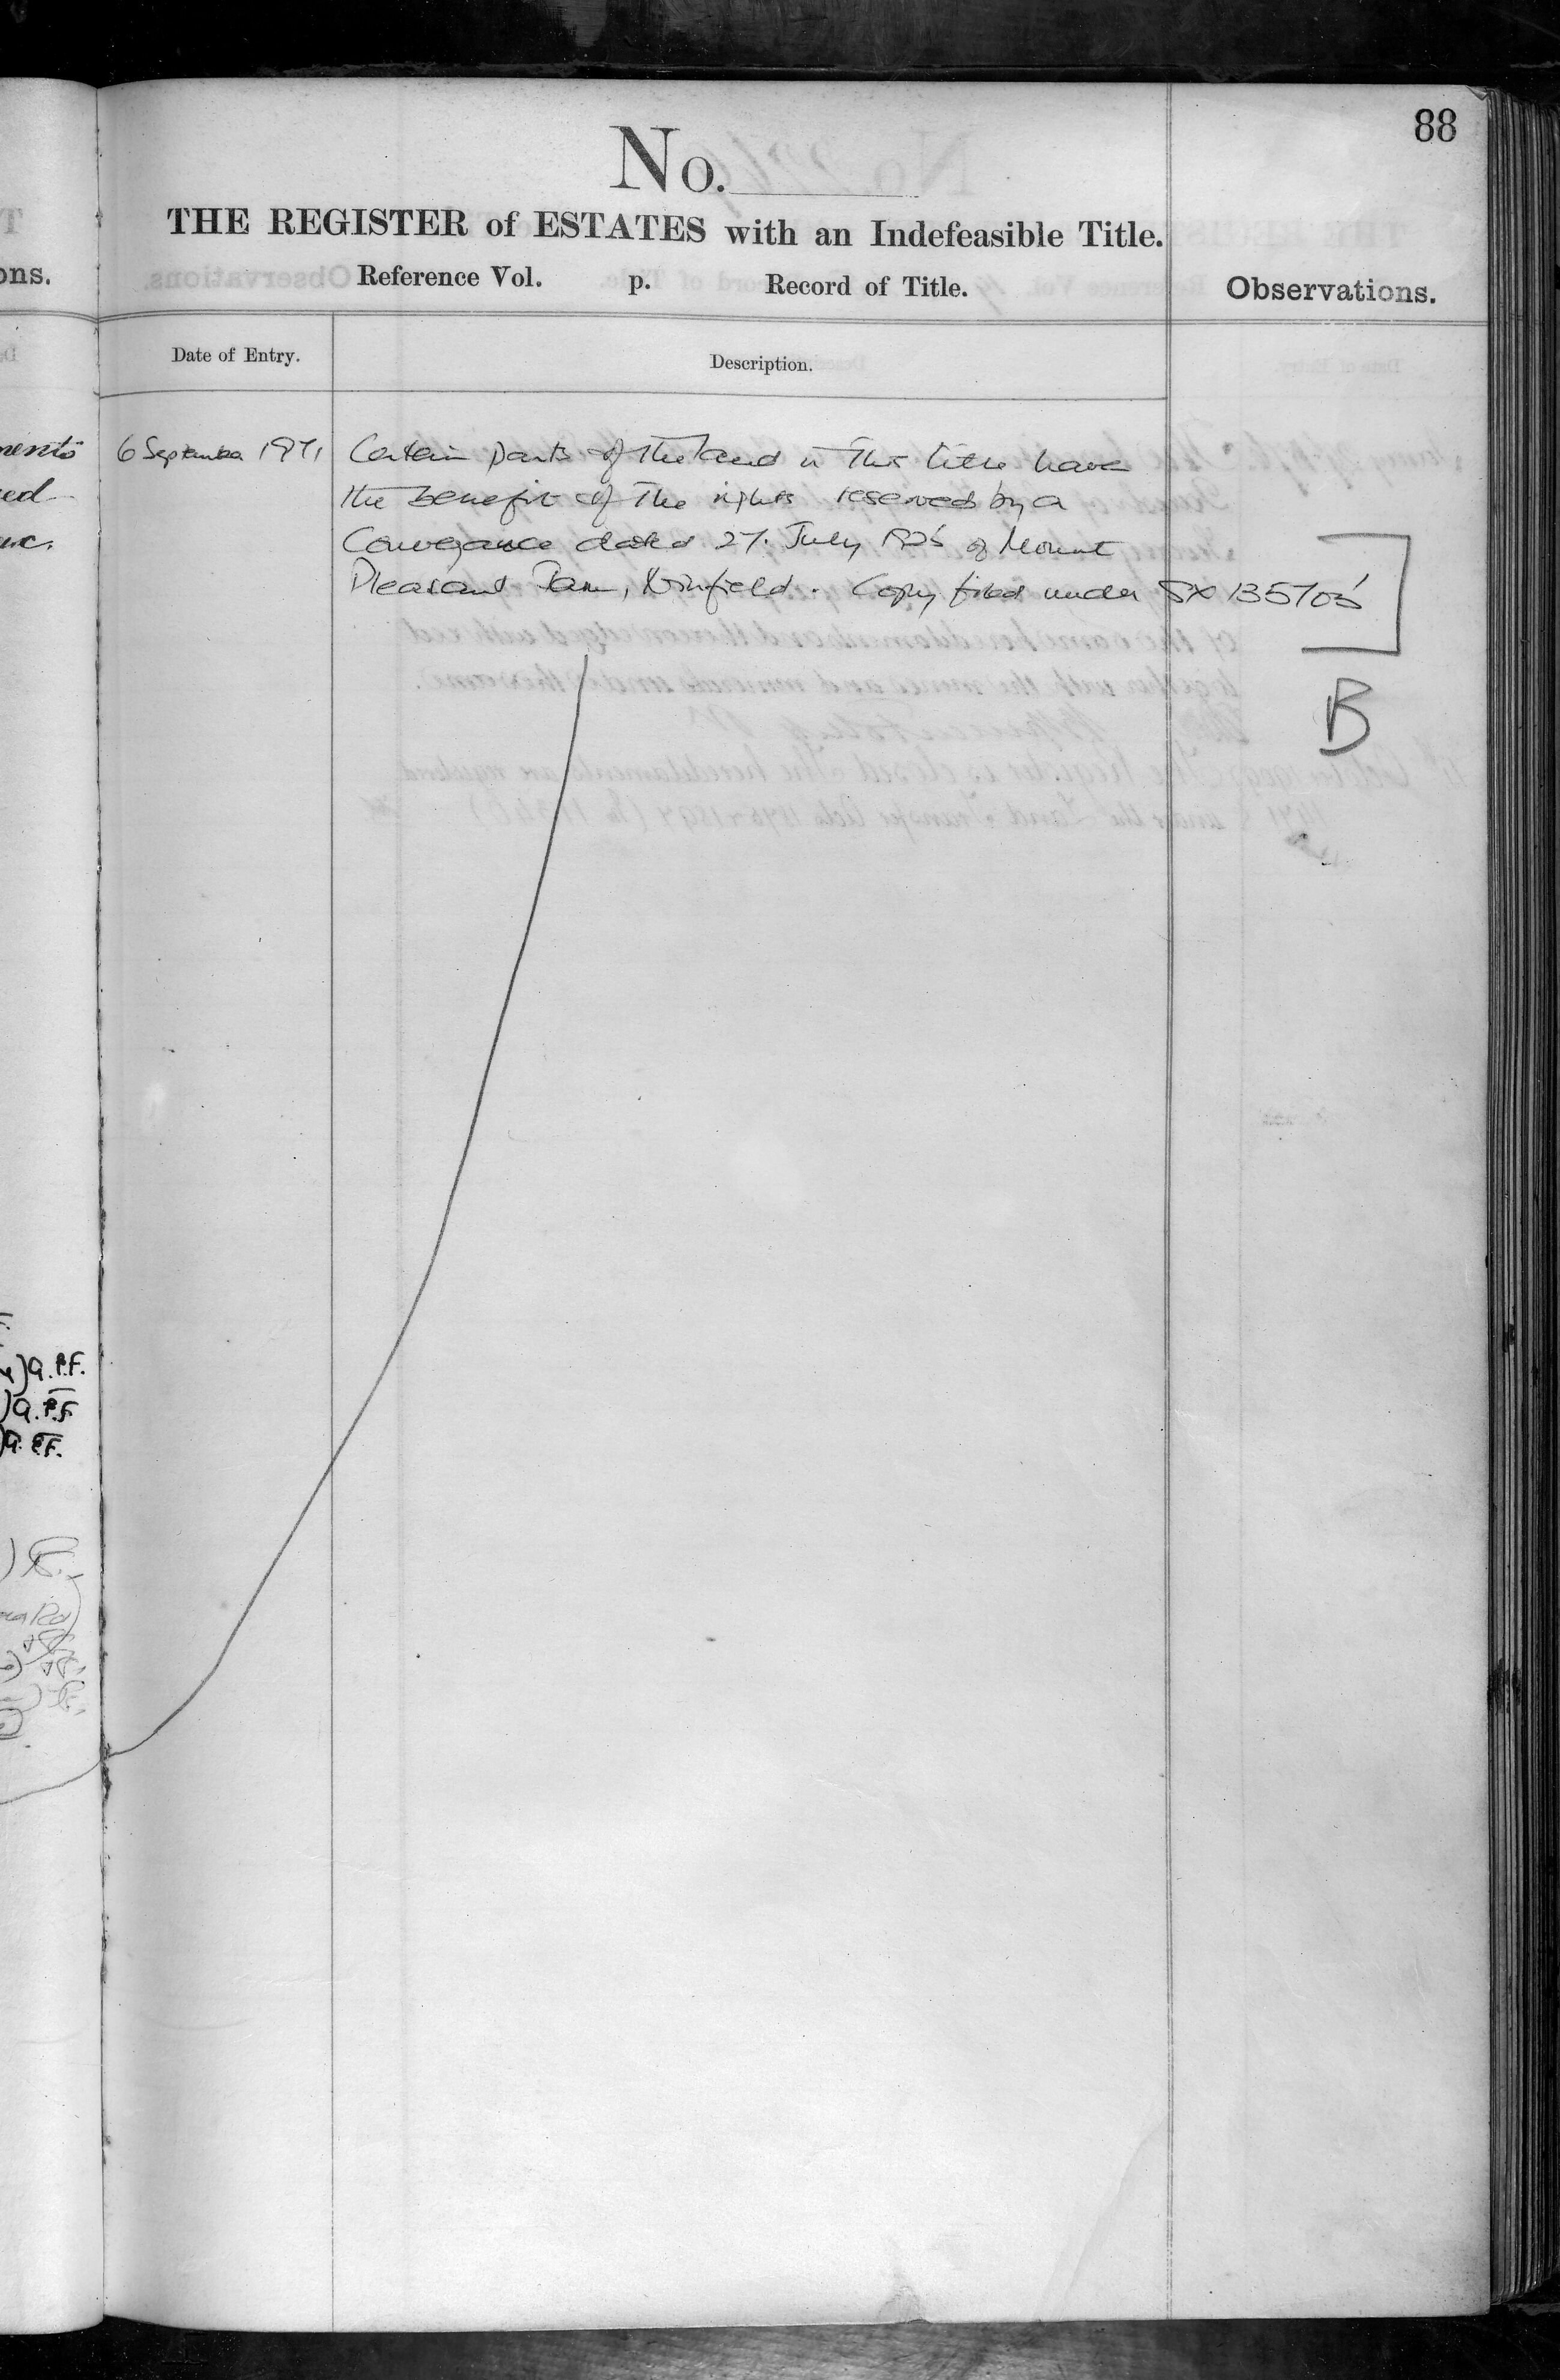 88
No.
THE REGISTER of ESTATES with an Indefeasible Title.
Reference Vol. p. Record of Title.
Observations.
Date of Entry.
Description.
6 September 1971
Certain parts of the land in this title have
the benefit of the rights reserved by a
Conveyance dated 27. July 1925 of Mount
Pleasant Farm, Ninfield. Copy filed under SX 135703
B
ons.
ments
)a. P.F.
)a. P.F
)a. P.F.